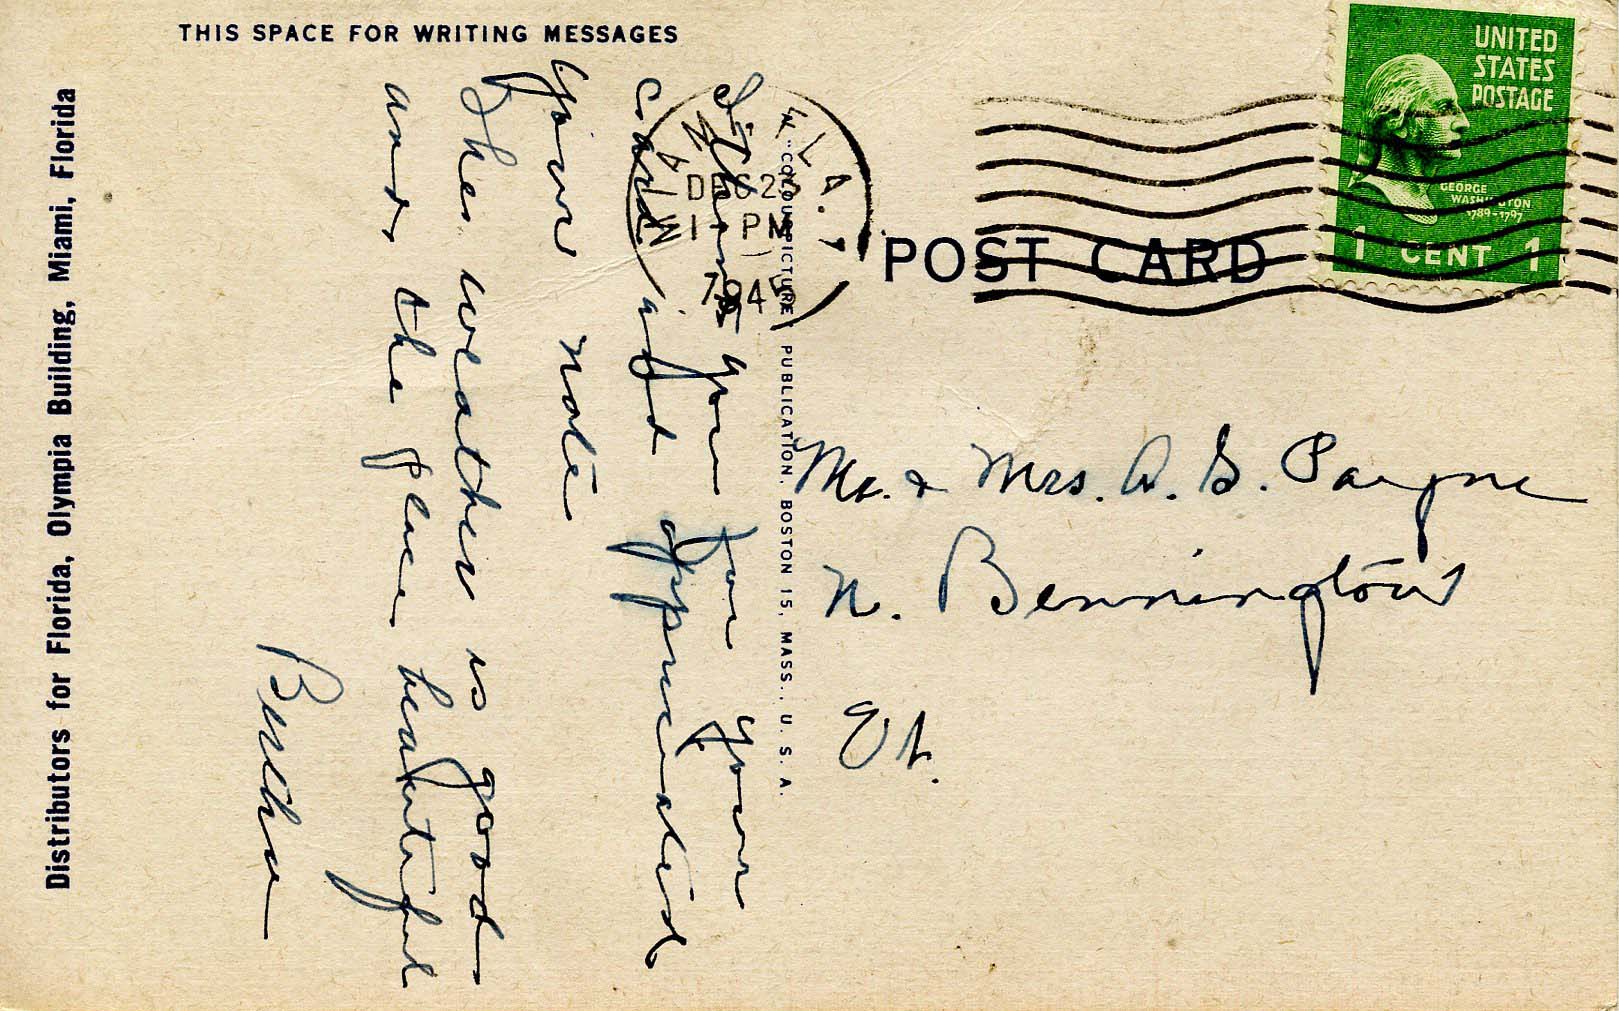 THIS SPACE FOR WRITING MESSAGES
Distributors for Florida, Olympia Building, Miami, Florida
Thank you for your
card and appreciated
your note
The weather is good
and the place beautiful
Bertha
"COLOURPICTURE" PUBLICATION, BOSTON 15, MASS., U. S. A.
MIAMI FLA.
DEC 23
1 - PM
POST CARD
UNITED
STATES
POSTAGE
GEORGE
WASHINGTON
1789-1797
1 CENT 1
Mr. & Mrs. A. G. Payne
N. Bennington
Vt.